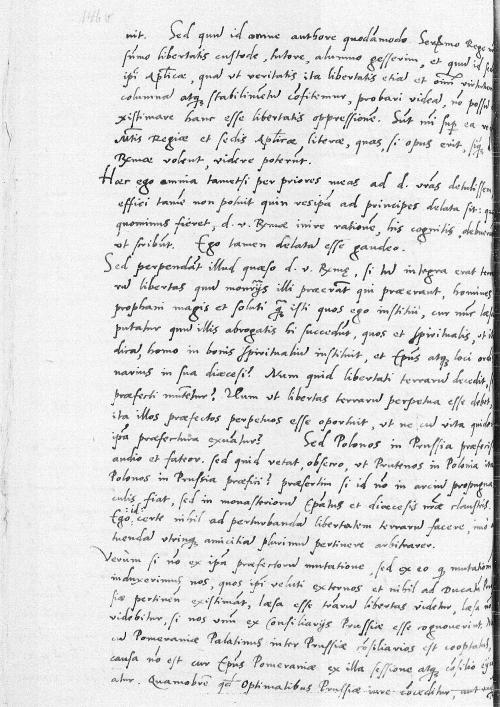 146 v
uit. Sed quu id omne authore quodamodo Serissmo Rege
sumo libertatis custode, tutore, alumno gesserim, et quu id sed
ipi Aplicae, qua ut veritatis ita libertatis etia et oim virtutum
columna atq stabilimetu cofitemur, probari videa, no possu
existimare hanc esse libertatis oppressione. Sut mi sup ea re
Mtis Regiae et sedis Aplicae literae, quas, si opus erit,
Rvmae volent, videre poterut.
Haec ego omnia tametsi per priores meas ad d. vras detulissem
effici tame non potuit quin resipa ad principes delata sit:
quominus fieret, d. v. Rvmae inire ratione, his cognitis, debue
ut scribut. Ego tamen delata esse gaudeo.
Sed perpendat illud quaeso d. v. Rvme, si tu integra erat
ru libertas quu monrijs illi praeerat qui praeerunt, homines
prophani magis et soluti q isti quos ego institui, cur nuc laesa
putatur quu illis abrogatis hi succedut, quos et spiritualis, ut
dira, homo in bonis spiritualiu instituit, et Epus atq loci ord
narius in sua dioecesi? Num quid libertati terraru decedit,
praefecti mutetur? Num ut libertas terraru perpetua esse debet,
ita illos praefectos perpetuos esse oportuit, ut ne cu vita quide
ipa praefectura exuatur? Sed Polonos in Prussia praefeci
audio et fateor. sed quid vetat, obsecro, ut Prutenos in Polonia ita
Polonos in Prussia praefici? praesertim si id no in arciu propugna
culis fiat, sed in monasterioru Epatus et dioecesis meae claustris.
Ego id certe nihil ad perturbanda libertatem terraru facere, imo
tuenda utrinq amicitia plurimu pertinere arbitrarer.
Verum si no ex ipa praefectoru mutatione, sed ex eo q mutatio
induxerimus nos, quos ipi veluti externos et nihil ad Ducat Prus
siae pertinere existimat, laesa esse terraru libertas videtur, laesa
videbitur, si nos unu ex Consiliarijs Prussiae esse cognoverint.
cu Pomeraniae Palatinus inter Prussiae cosiliarios est cooptatus,
causa no est cur Epus Pomeraniae ex illa sessione atq cosilio
atur. Quamobre qd Optimatibus Prussiae iure coceditur, aut